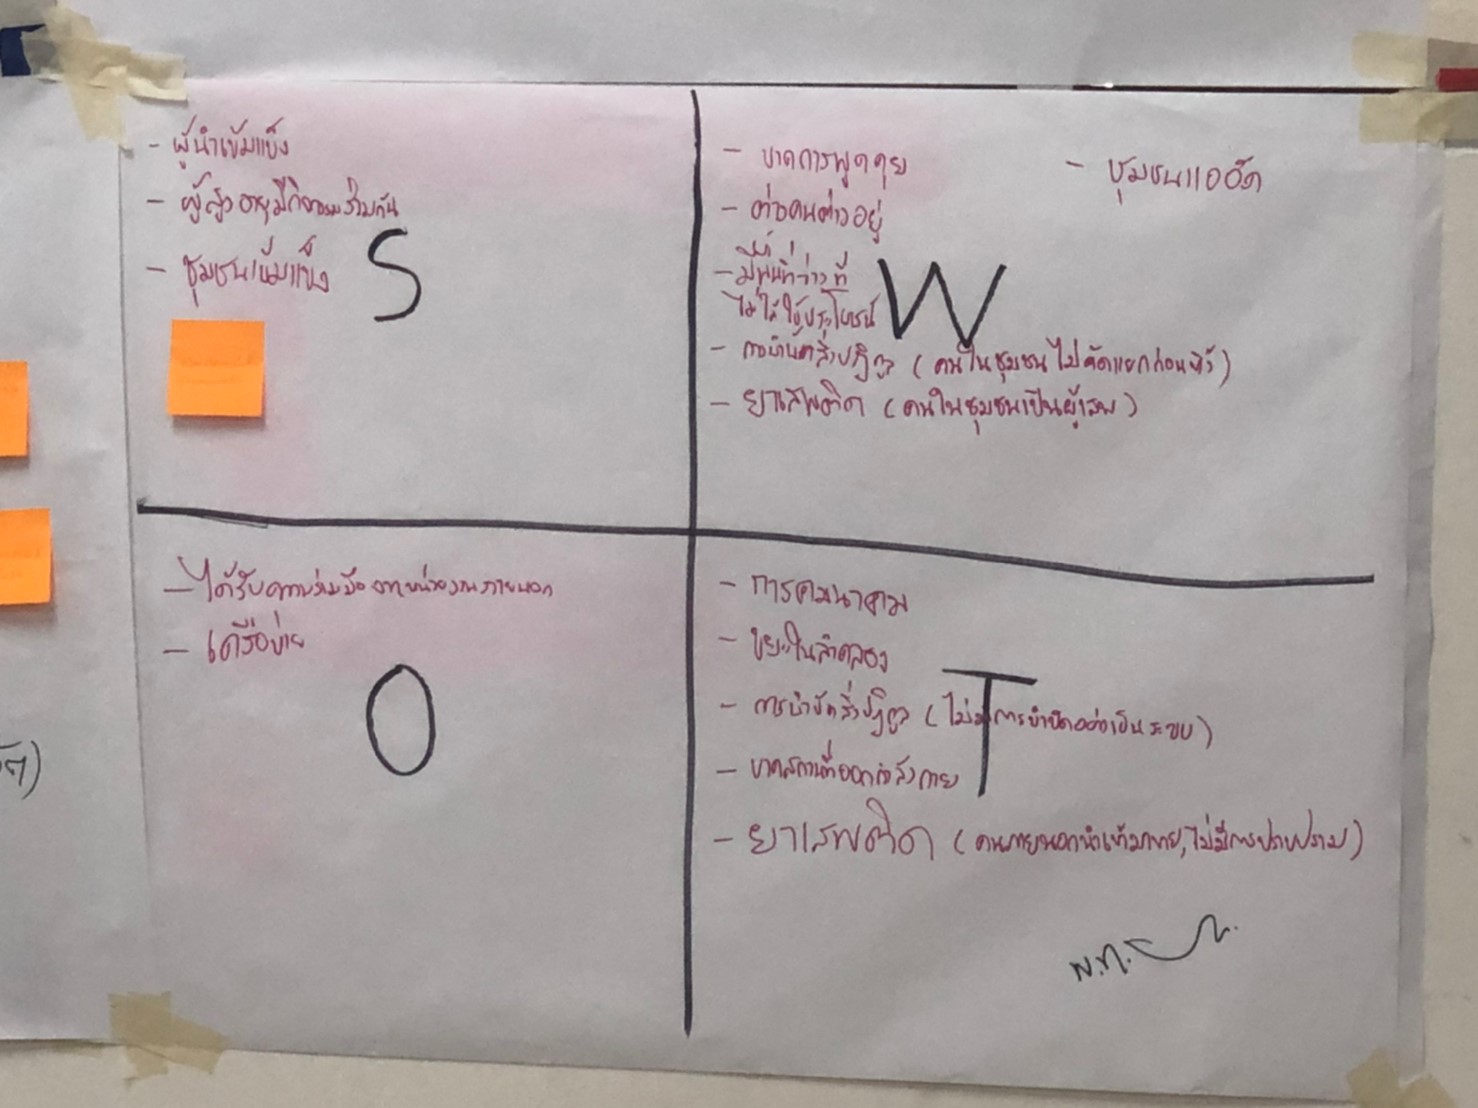 - ผู้นำเข้มแข็ง
- ผู้สูงอายุมีกิจกรรมร่วมกัน
- ชุมชนเข้มแข็ง
S
- ขาดการพูดคุย
- ต่างคนต่างอยู่
- มีพื้นที่ว่างที่
ไม่ได้ใช้ประโยชน์
- การบำบัดสิ่งปฏิกูล (คนในชุมชนไม่คัดแยกก่อนทิ้ง)
- ยาเสพติด (คนในชุมชนเป็นผู้เสพ)
- ชุมชนแออัด
W
- ได้รับความร่วมมือจากหน่วยงานภายนอก
- เครือข่าย
O
- การคมนาคม
- ขยะในลำคลอง
- การบำบัดสิ่งปฏิกูล (ไม่มีการบำบัดอย่างเป็นระบบ)
- ขาดสถานที่ออกกำลังกาย
- ยาเสพติด (คนภายนอกนำเข้ามาขาย, ไม่มีการปราบปราม)
T